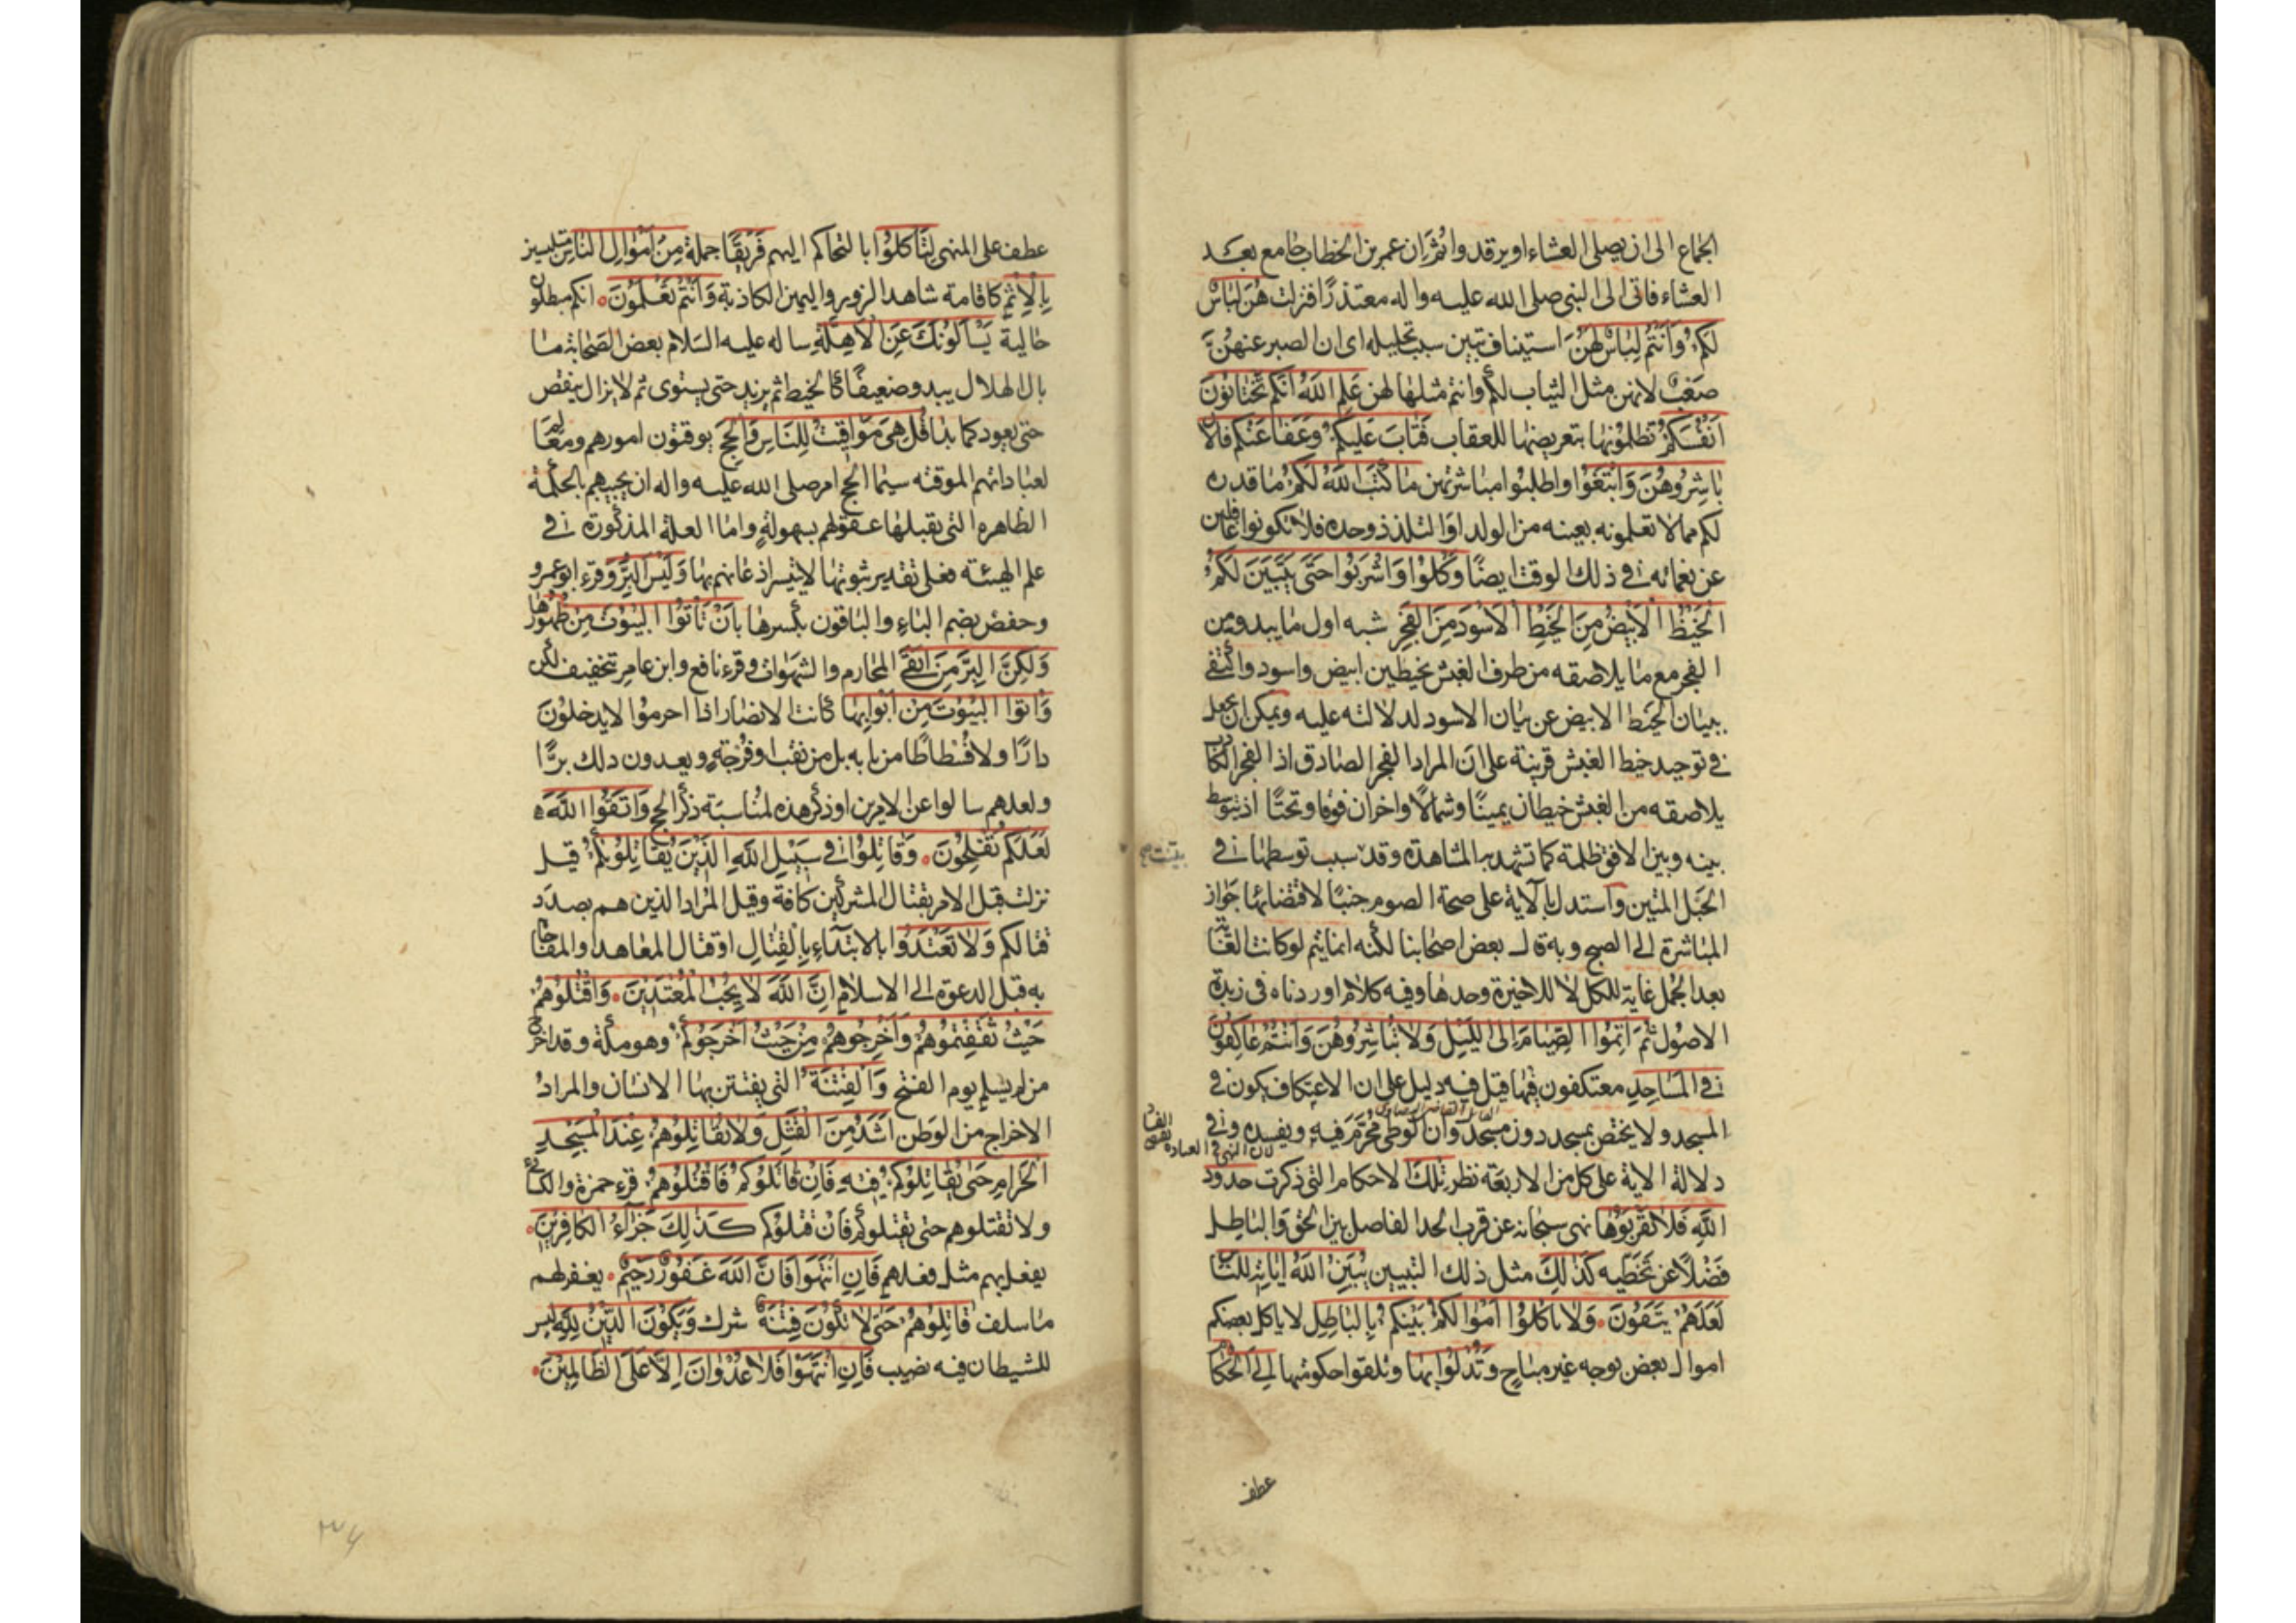 الجماع الى ان يصلى العشاء او يرقد واثران عمر بن الخطاب جامع بعد
العشاء فاتى الى النبى صلى الله عليه واله معتذرًا فنزلت هُنَّ لِبَاسٌ
لَكُمْ وَاَنْتُمْ لِبَاسٌ لَهُنَّ استيناف تبين سبب تحليله اى ان الصبر عنهن
صَعْبٌ لانهن مثل الثياب لكم وانتم مثلها لهن عَلِمَ اللهُ اَنَّكُمْ تَخْتَانُونَ
اَنْفُسَكُمْ تظلمونها بتعريضها للعقاب فَتَابَ عَلَيْكُمْ وَعَفَا عَنْكُمْ فَالْاٰنَ
بَاشِرُوهُنَّ وَابْتَغُوا واطلبوا مباشرتهن مَا كَتَبَ اللهُ لَكُمْ ما قدره
لكم مما لا تعلمونه بعينه من الولد او التلذذ وحده فلا تكونوا غافلين
عن نعمائه فى ذلك الوقت ايضًا وَكُلُوا وَاشْرَبُوا حَتّٰى يَتَبَيَّنَ لَكُمُ
الْخَيْطُ الْاَبْيَضُ مِنَ الْخَيْطِ الْاَسْوَدِ مِنَ الْفَجْرِ شبه اول ما يبدو من
الفجر مع ما يلاصقه من طرف الغبش بخيطين ابيض واسود واكتفى
ببيان الخيط الابيض عن بيان الاسود لدلالته عليه ويمكن ان يجعل
فى توحيد خيط الغبش قرينة على ان المراد الفجر الصادق اذ الفجر الكاذب
يلاصقه من الغبش خيطان يمينًا وشمالًا واخران فوقا وتحتًا اذ يتوسط
بينه وبين الافق ظلمة كما تشهد به المشاهدة وقد سبب توسطها فى
الحبل المتين واستدل بالآية على صحة الصوم جنبًا لاقتضائها جواز
المباشرة الى الصبح وبه قال بعض اصحابنا لكنه انما يتم لو كانت الغاية
بعد الجمل غاية للكل لا للاخيرة وحدها وفيه كلام اوردناه فى زبدة
الاصول ثُمَّ اَتِمُّوا الصِّيَامَ اِلَى اللَّيْلِ وَلَا تُبَاشِرُوهُنَّ وَاَنْتُمْ عَاكِفُونَ
فِى الْمَسَاجِدِ معتكفون فيها قيل فيه دليل على ان الاعتكاف يكون فى
القائل القاضى البيضاوى
المسجد ولا يختص بمسجد دون مسجد وان الوطى محرم فيه ويفسده وفى
لان النهى فى العبادة
دلالة الاية على كل من الاربعة نظر تِلْكَ الاحكام التى ذكرت حُدُودُ
اللهِ فَلَا تَقْرَبُوهَا نهى سبحانه عن قرب الحد الفاصل بين الحق والباطل
فضلًا عن تخطيه كَذٰلِكَ مثل ذلك التبيين يُبَيِّنُ اللهُ اٰيَاتِهِ لِلنَّاسِ
لَعَلَّهُمْ يَتَّقُونَ وَلَا تَاْكُلُوا اَمْوَالَكُمْ بَيْنَكُمْ بِالْبَاطِلِ لا ياكل بعضكم
اموال بعض بوجه غير مباح وَتُدْلُوا بِهَا وتلقوا حكومتها اِلَى الْحُكَّامِ
عطف
عطف على المنهى لِتَاْكُلُوا بالتحاكم اليهم فَرِيقًا جملة مِنْ اَمْوَالِ النَّاسِ متلبسين
بِالْاِثْمِ كاقامة شاهد الزور واليمين الكاذبة وَاَنْتُمْ تَعْلَمُونَ انكم مبطلون
حالية يَسْاَلُونَكَ عَنِ الْاَهِلَّةِ ساله عليه السلام بعض الصحابة ما
بال الهلال يبدو ضعيفًا كالخيط ثم يزيد حتى يستوى ثم لا يزال ينقص
حتى يعود كما بدا قُلْ هِىَ مَوَاقِيتُ لِلنَّاسِ وَالْحَجِّ يوقتون امورهم ومعالم
لعباداتهم الموقته سيما الحج امر صلى الله عليه واله ان يجيبهم بالحكمة
الظاهرة التى يقبلها عقولهم بسهولةٍ واما العلة المذكورة فى
علم الهيئه فعلى تقدير ثبوتها لا يتيسر اذعانهم بها وَلَيْسَ الْبِرُّ وقرء ابو عمرو
وحفص بضم الباء والباقون بكسرها بِاَنْ تَاْتُوا الْبُيُوتَ مِنْ ظُهُورِهَا
وَلٰكِنَّ الْبِرَّ مَنِ اتَّقٰى المحارم والشهوات وقرء نافع وابن عامر بتخفيف لكن
وَاْتُوا الْبُيُوتَ مِنْ اَبْوَابِهَا كانت الانصار اذا احرموا لا يدخلون
دارًا ولا فسطاطًا من بابه بل من نقب او فُرْجَةٍ ويعدون ذلك برًّا
ولعلهم سالوا عن الامرين او ذكر هذه لمناسبة ذكر الحج وَاتَّقُوا اللهَ
لَعَلَّكُمْ تُفْلِحُونَ وَقَاتِلُوا فِى سَبِيلِ اللهِ الَّذِينَ يُقَاتِلُونَكُمْ قيل
نزلت قبل الامر بقتال المشركين كافة وقيل المراد الذين هم بصدد
قتالكم وَلَا تَعْتَدُوا بالابتداء بالقتال او قتال المعاهد والمفاجاة
به قبل الدعوة الى الاسلام اِنَّ اللهَ لَا يُحِبُّ الْمُعْتَدِينَ وَاقْتُلُوهُمْ
حَيْثُ ثَقِفْتُمُوهُمْ وَاَخْرِجُوهُمْ مِنْ حَيْثُ اَخْرَجُوكُمْ وهو مكة وقد اخرج
من لم يسلم يوم الفتح وَالْفِتْنَةُ التى يفتتن بها الانسان والمراد
الاخراج من الوطن اَشَدُّ مِنَ الْقَتْلِ وَلَا تُقَاتِلُوهُمْ عِنْدَ الْمَسْجِدِ
الْحَرَامِ حَتّٰى يُقَاتِلُوكُمْ فِيهِ فَاِنْ قَاتَلُوكُمْ فَاقْتُلُوهُمْ قرء حمزة والكسائى
ولا تقتلوهم حتى يقتلوكم فان قتلوكم كَذٰلِكَ جَزَاءُ الْكَافِرِينَ
يفعل بهم مثل فعلهم فَاِنِ انْتَهَوْا فَاِنَّ اللهَ غَفُورٌ رَحِيمٌ يغفر لهم
ما سلف قَاتِلُوهُمْ حَتّٰى لَا تَكُونَ فِتْنَةٌ شرك وَيَكُونَ الدِّينُ لِلّٰهِ ليس
للشيطان فيه نصيب فَاِنِ انْتَهَوْا فَلَا عُدْوَانَ اِلَّا عَلَى الظَّالِمِينَ